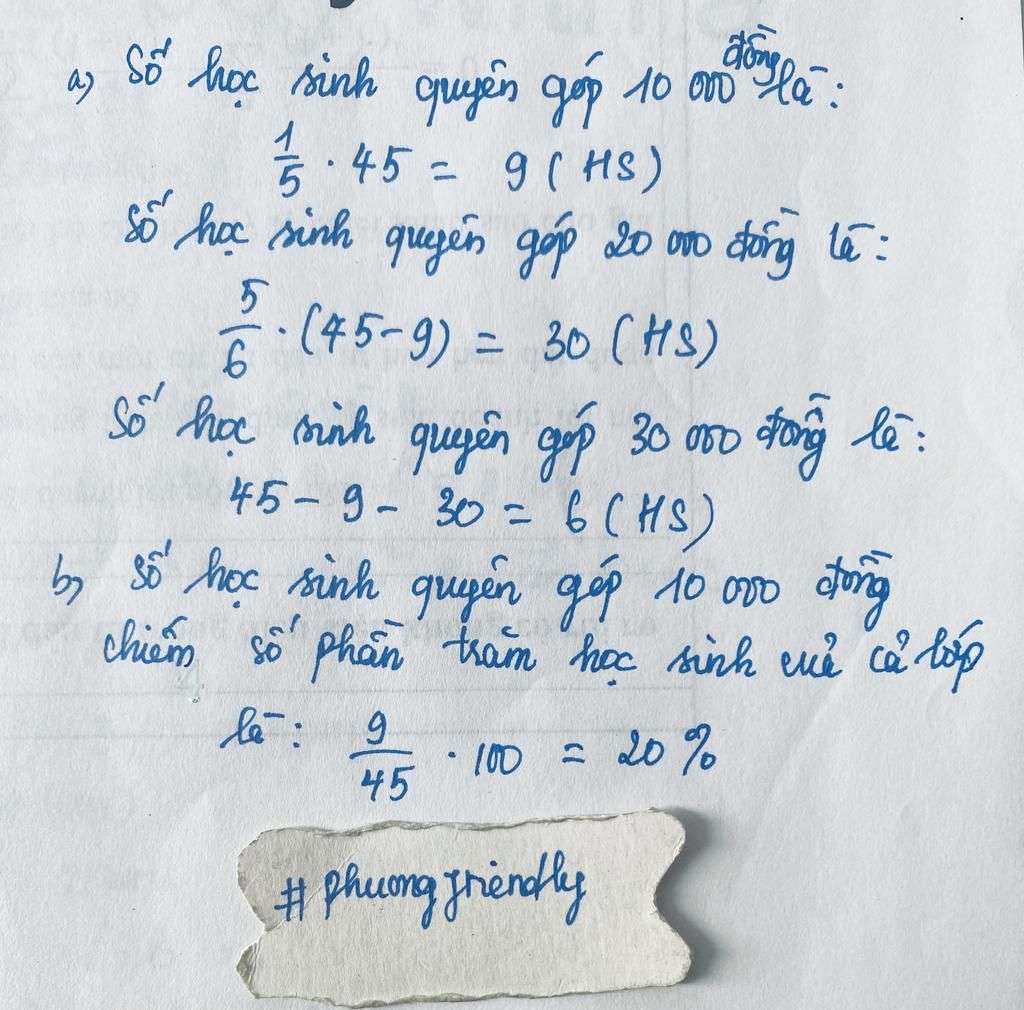 a) Số học sinh quyên góp 10 000 đồng là:
1/5 . 45 = 9 (HS)
Số học sinh quyên góp 20 000 đồng là:
5/6 . (45 - 9) = 30 (HS)
Số học sinh quyên góp 30 000 đồng là:
45 - 9 - 30 = 6 (HS)
b) Số học sinh quyên góp 10 000 đồng
chiếm số phần trăm học sinh của cả lớp
là: 9/45 . 100 = 20 %
#phuongfriendly